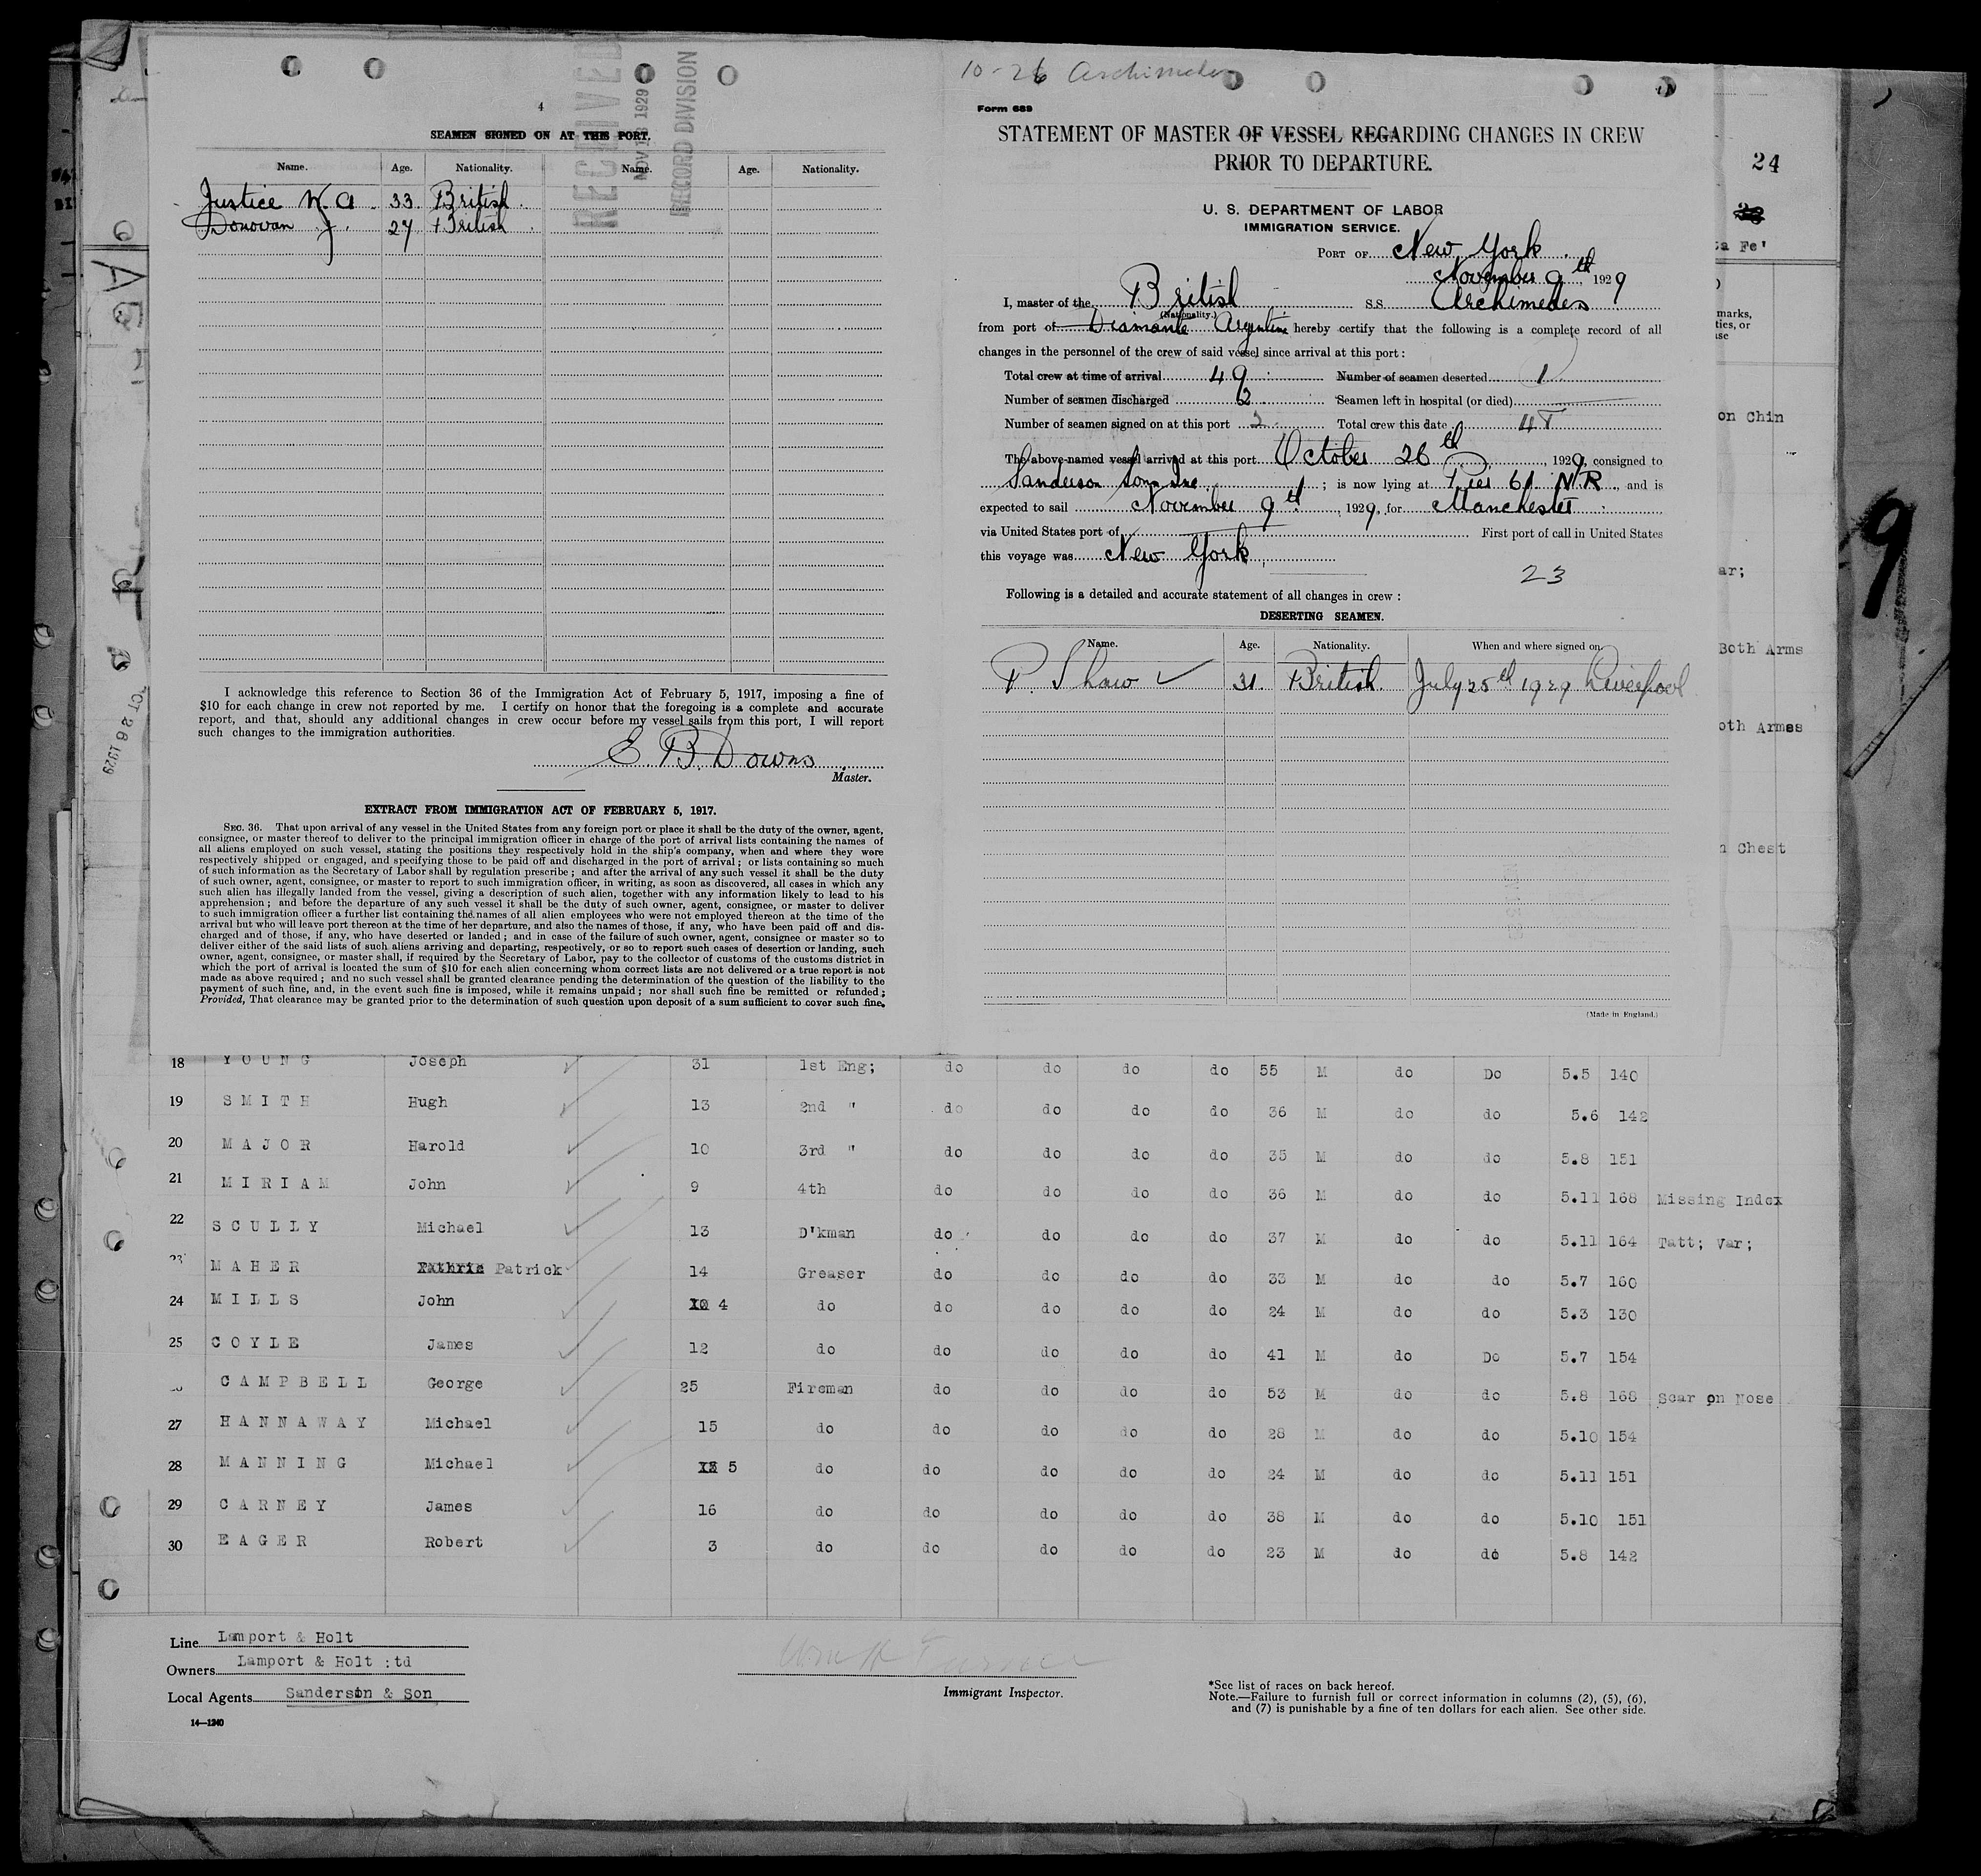 4
RECEIVED
NOV 13 1929
RECORD DIVISION
SEAMEN SIGNED ON AT THIS PORT.
Name. Age. Nationality. Name. Age. Nationality.
Justice W. A. 33. British.
Donovan J. 27 British.
I acknowledge this reference to Section 36 of the Immigration Act of February 5, 1917, imposing a fine of
$10 for each change in crew not reported by me. I certify on honor that the foregoing is a complete and accurate
report, and that, should any additional changes in crew occur before my vessel sails from this port, I will report
such changes to the immigration authorities.
E. B. Downs
Master.
EXTRACT FROM IMMIGRATION ACT OF FEBRUARY 5, 1917.
SEC. 36. That upon arrival of any vessel in the United States from any foreign port or place it shall be the duty of the owner, agent,
consignee, or master thereof to deliver to the principal immigration officer in charge of the port of arrival lists containing the names of
all aliens employed on such vessel, stating the positions they respectively hold in the ship's company, when and where they were
respectively shipped or engaged, and specifying those to be paid off and discharged in the port of arrival; or lists containing so much
of such information as the Secretary of Labor shall by regulation prescribe; and after the arrival of any such vessel it shall be the duty
of such owner, agent, consignee, or master to report to such immigration officer, in writing, as soon as discovered, all cases in which any
such alien has illegally landed from the vessel, giving a description of such alien, together with any information likely to lead to his
apprehension; and before the departure of any such vessel it shall be the duty of such owner, agent, consignee, or master to deliver
to such immigration officer a further list containing the names of all alien employees who were not employed thereon at the time of the
arrival but who will leave port thereon at the time of her departure, and also the names of those, if any, who have been paid off and dis-
charged and of those, if any, who have deserted or landed; and in case of the failure of such owner, agent, consignee or master so to
deliver either of the said lists of such aliens arriving and departing, respectively, or so to report such cases of desertion or landing, such
owner, agent, consignee, or master shall, if required by the Secretary of Labor, pay to the collector of customs of the customs district in
which the port of arrival is located the sum of $10 for each alien concerning whom correct lists are not delivered or a true report is not
made as above required; and no such vessel shall be granted clearance pending the determination of the question of the liability to the
payment of such fine, and, in the event such fine is imposed, while it remains unpaid; nor shall such fine be remitted or refunded;
Provided, That clearance may be granted prior to the determination of such question upon deposit of a sum sufficient to cover such fine.
10-26 Archimedes
Form 689
STATEMENT OF MASTER OF VESSEL REGARDING CHANGES IN CREW
PRIOR TO DEPARTURE.
U. S. DEPARTMENT OF LABOR
IMMIGRATION SERVICE.
PORT OF New York
November 9th, 1929
I, master of the British S.S. Archimedes
(Nationality.)
from port of Diamante Argentine hereby certify that the following is a complete record of all
changes in the personnel of the crew of said vessel since arrival at this port:
Total crew at time of arrival 49 Number of seamen deserted 1
Number of seamen discharged 2 Seamen left in hospital (or died)
Number of seamen signed on at this port 2 Total crew this date 48
The above-named vessel arrived at this port October 26th, 1929, consigned to
Sanderson Sons Inc; is now lying at Pier 61 N.R., and is
expected to sail November 9th, 1929, for Manchester
via United States port of First port of call in United States
this voyage was New York
23
Following is a detailed and accurate statement of all changes in crew:
DESERTING SEAMEN.
Name. Age. Nationality. When and where signed on.
P. Shaw ✓ 31. British. July 25th 1929 Liverpool
(Made in England.)
24
ta Fe'
marks,
ties, or
ase
on Chin
ar;
Both Arms
oth Armes
n Chest
9
OCT 26 1929
18 YOUNG Joseph 31 1st Eng; do do do do 55 M do Do 5.5 140
19 SMITH Hugh 13 2nd " do do do do 36 M do do 5.6 142
20 MAJOR Harold 10 3rd " do do do do 35 M do do 5.8 151
21 MIRIAM John 9 4th do do do do 36 M do do 5.11 168 Missing Index
22 SCULLY Michael 13 D'kman do do do do 37 M do do 5.11 164 Tatt; Var;
23 MAHER Patrick 14 Greaser do do do do 33 M do do 5.7 160
24 MILLS John 4 do do do do do 24 M do do 5.3 130
25 COYLE James 12 do do do do do 41 M do Do 5.7 154
CAMPBELL George 25 Fireman do do do do 53 M do do 5.8 168 Scar on Nose
27 HANNAWAY Michael 15 do do do do do 28 M do do 5.10 154
28 MANNING Michael 5 do do do do do 24 M do do 5.11 151
29 CARNEY James 16 do do do do do 38 M do do 5.10 151
30 EAGER Robert 3 do do do do do 23 M do do 5.8 142
Line Lamport & Holt
Owners Lamport & Holt :td
Local Agents Sanderson & Son
14—1240
Immigrant Inspector.
*See list of races on back hereof.
Note.—Failure to furnish full or correct information in columns (2), (5), (6),
and (7) is punishable by a fine of ten dollars for each alien. See other side.